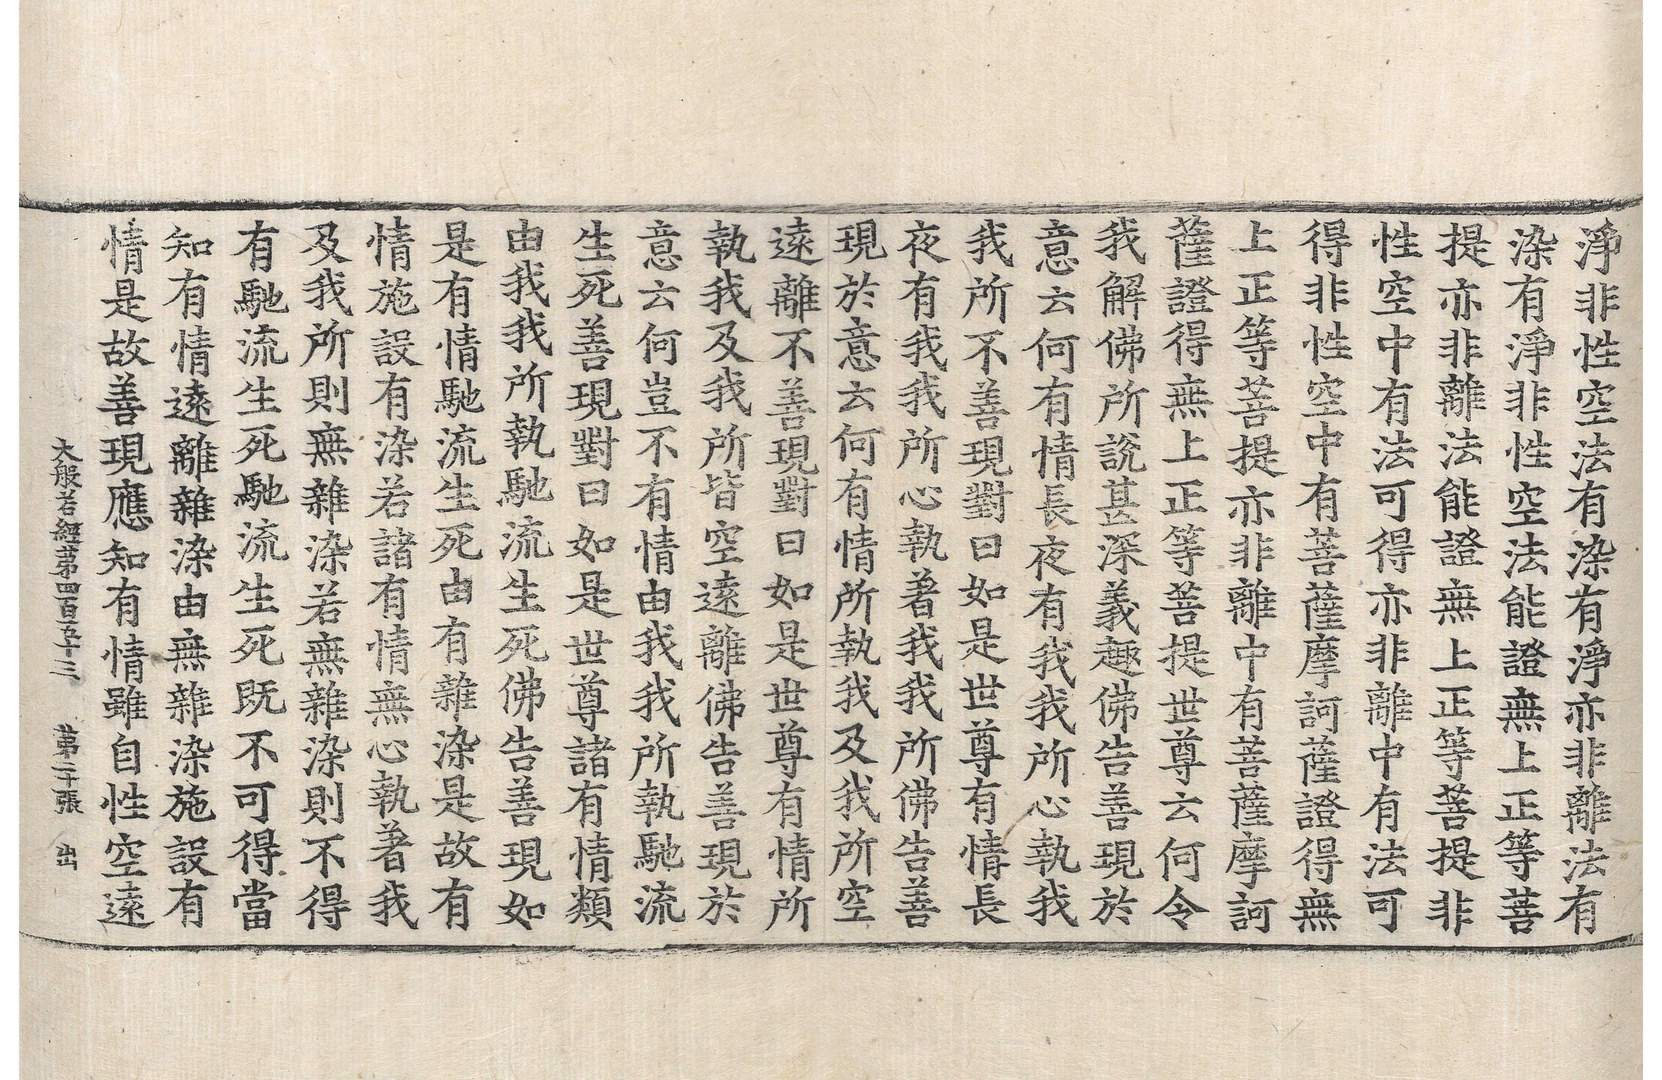 淨非性空法有染有淨亦非離法有
染有淨非性空法能證無上正等菩
提亦非離法能證無上正等菩提非
性空中有法可得亦非離中有法可
得非性空中有菩薩摩訶薩證得無
上正等菩提亦非離中有菩薩摩訶
薩證得無上正等菩提世尊云何令
我解佛所說甚深義趣佛告善現於
意云何有情長夜有我我所心執我
我所不善現對曰如是世尊有情長
夜有我我所心執著我我所佛告善
現於意云何有情所執我及我所空
遠離不善現對曰如是世尊有情所
執我及我所皆空遠離佛告善現於
意云何豈不有情由我我所執馳流
生死善現對曰如是世尊諸有情類
由我我所執馳流生死佛告善現如
是有情馳流生死由有雜染是故有
情施設有染若諸有情無心執著我
及我所則無雜染若無雜染則不得
有馳流生死馳流生死既不可得當
知有情遠離雜染由無雜染施設有
情是故善現應知有情雖自性空遠
大般若經苐四百五十三 苐二十張 出